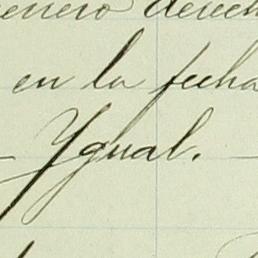 enero derech
en la fecha
Ygual.